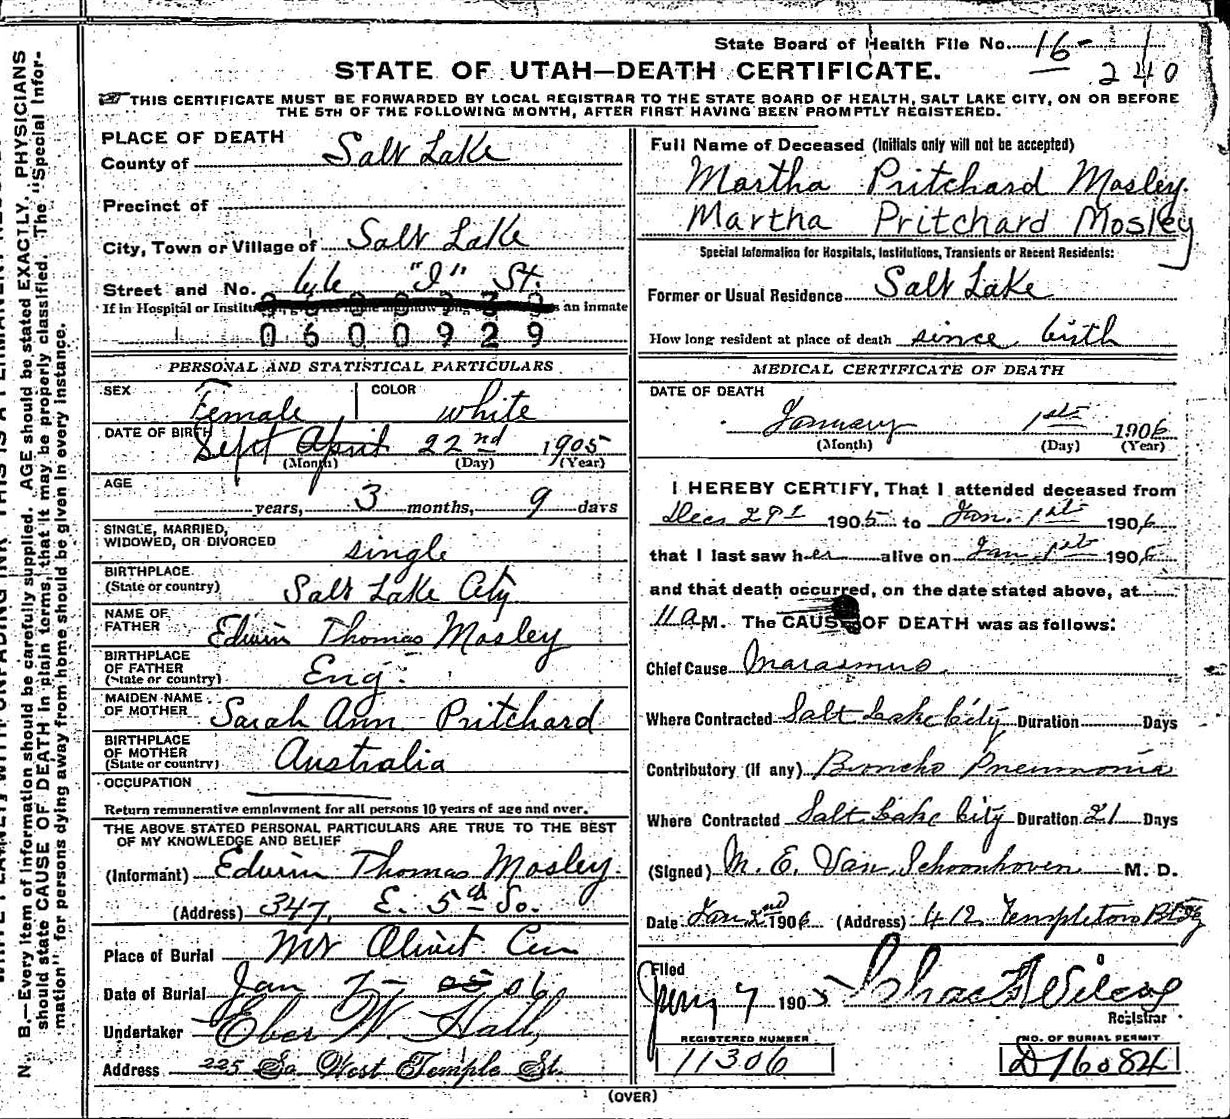 State Board of Health File No. 16-
240
STATE OF UTAH—DEATH CERTIFICATE.
THIS CERTIFICATE MUST BE FORWARDED BY LOCAL REGISTRAR TO THE STATE BOARD OF HEALTH, SALT LAKE CITY, ON OR BEFORE
THE 5TH OF THE FOLLOWING MONTH, AFTER FIRST HAVING BEEN PROMPTLY REGISTERED.
N. B.—Every item of information should be carefully supplied. AGE should be stated EXACTLY. PHYSICIANS
should state CAUSE OF DEATH in plain terms, that it may be properly classified. The "Special Infor-
mation" for persons dying away from home should be given in every instance.
PLACE OF DEATH
County of Salt Lake
Precinct of
City, Town or Village of Salt Lake
Street and No. "I" St.
If in Hospital or an inmate
0600929
PERSONAL AND STATISTICAL PARTICULARS
SEX Female COLOR white
DATE OF BIRTH Sept April 22nd 1905
(Month) (Day) (Year)
AGE
years, 3 months, 9 days
SINGLE, MARRIED,
WIDOWED, OR DIVORCED single
BIRTHPLACE
(State or country) Salt Lake City
NAME OF
FATHER Edwin Thomas Mosley
BIRTHPLACE
OF FATHER
(State or country) Eng.
MAIDEN NAME
OF MOTHER Sarah Ann Pritchard
BIRTHPLACE
OF MOTHER
(State or country) Australia
OCCUPATION
Return remunerative employment for all persons 10 years of age and over.
THE ABOVE STATED PERSONAL PARTICULARS ARE TRUE TO THE BEST
OF MY KNOWLEDGE AND BELIEF
(Informant) Edwin Thomas Mosley
(Address) 347, E. 5th So.
Place of Burial Mt Olivet Cem
Date of Burial Jan 05 06
Undertaker Eber W. Hall,
Address 225 So West Temple St.
Full Name of Deceased (Initials only will not be accepted)
Martha Pritchard Mosley.
Martha Pritchard Mosley
Special Information for Hospitals, Institutions, Transients or Recent Residents:
Former or Usual Residence Salt Lake
How long resident at place of death since birth
MEDICAL CERTIFICATE OF DEATH
DATE OF DEATH
January 1st 1906
(Month) (Day) (Year)
I HEREBY CERTIFY, That I attended deceased from
Dec 1905 to Jan. 1st 1906
that I last saw her alive on Jan 1st 1906
and that death occurred, on the date stated above, at
11 a M. The CAUSE OF DEATH was as follows:
Chief Cause Marasmus.
Where Contracted Salt Lake City Duration Days
Contributory (if any) Broncho Pneumonia
Where Contracted Salt Lake City Duration 21 Days
(Signed) M. E. Van Schoonhoven M. D.
Date Jan 2nd 1906 (Address) 412 Templeton Bldg
Filed
Jany 7 1905
Registrar
REGISTERED NUMBER
11306
NO. OF BURIAL PERMIT
D 16084
(OVER)